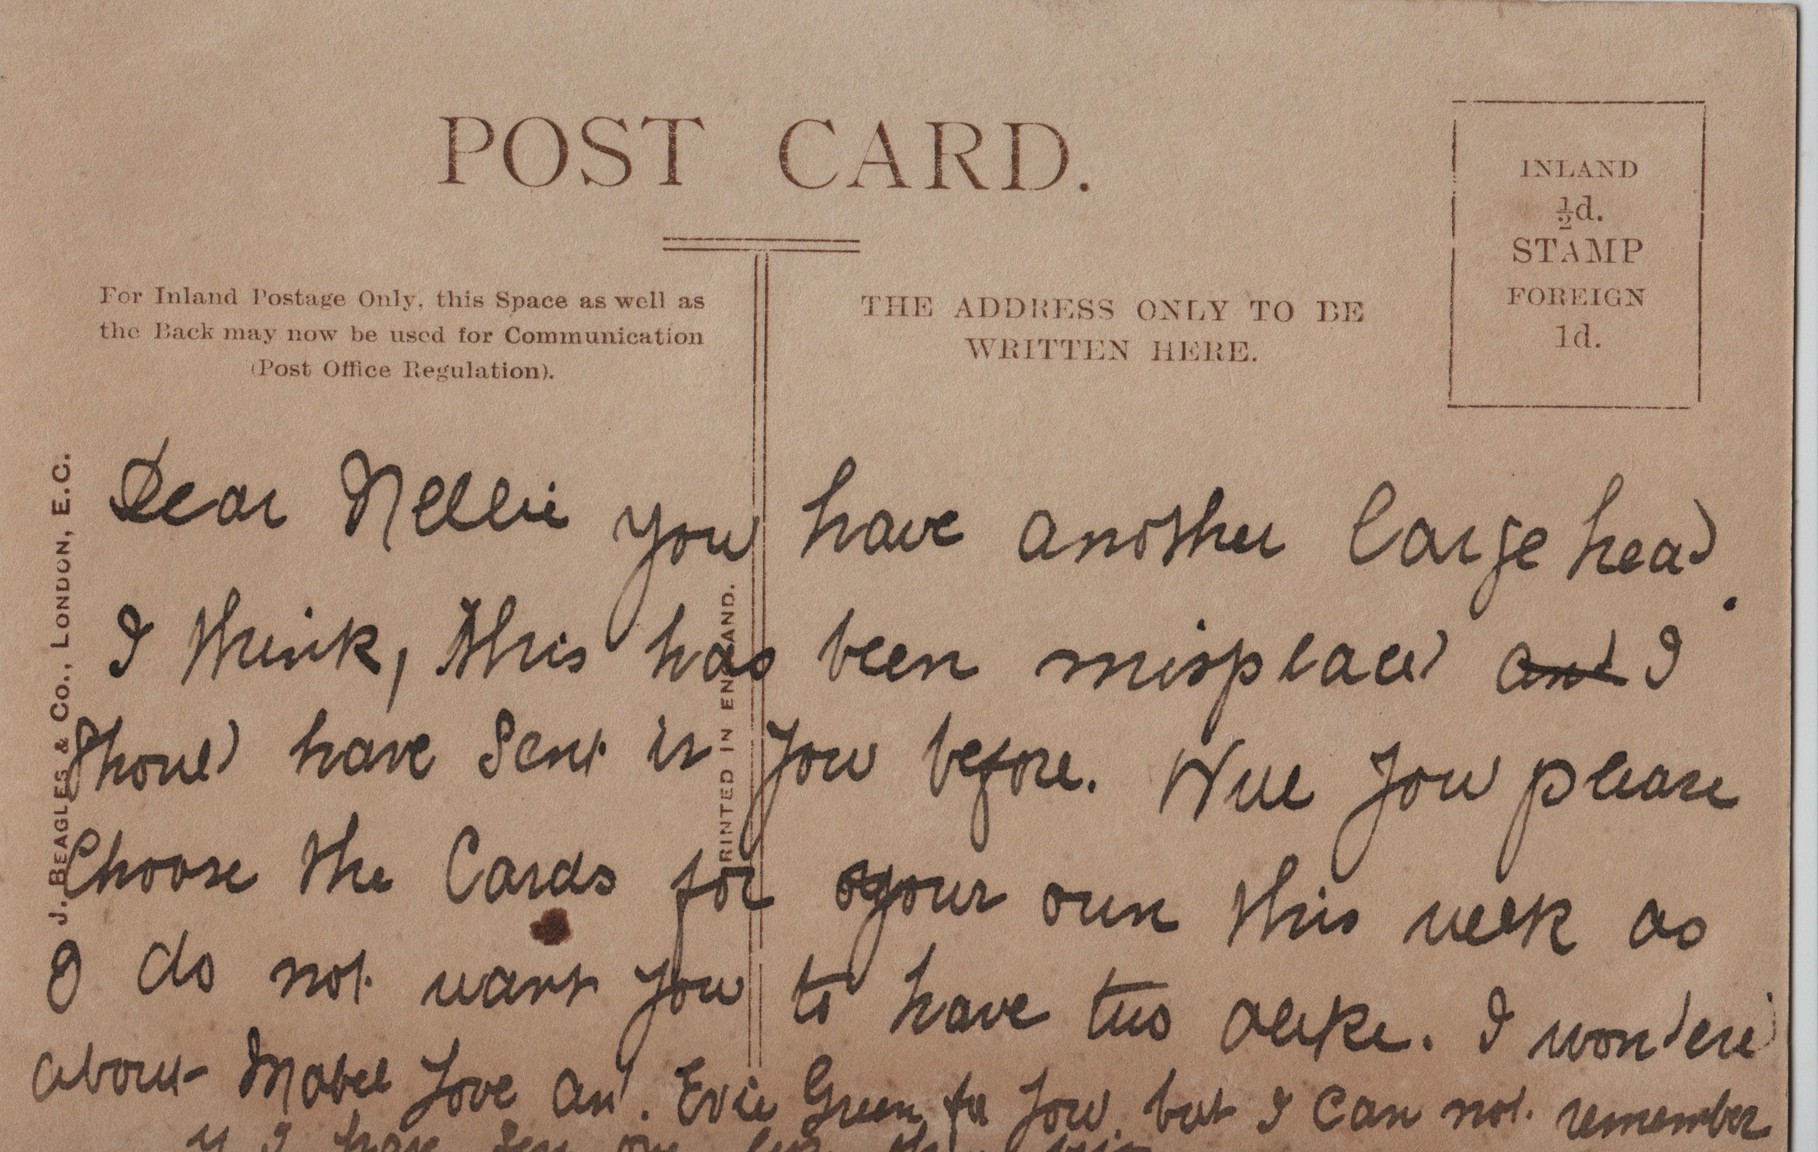 POST CARD.
INLAND
½d.
STAMP
FOREIGN
1d.
For Inland Postage Only, this Space as well as
the Back may now be used for Communication
(Post Office Regulation).
THE ADDRESS ONLY TO BE
WRITTEN HERE.
J. BEAGLES & Co., LONDON, E.C.
PRINTED IN ENGLAND.
Dear Nellie you have another large head
I think, this has been misplaced and I
should have sent it you before. Will you please
Choose the Cards for your own this week as
I do not want you to have two alike. I wondered
about Mabel Love and. Evie Green for you, but I can not remember
if I have